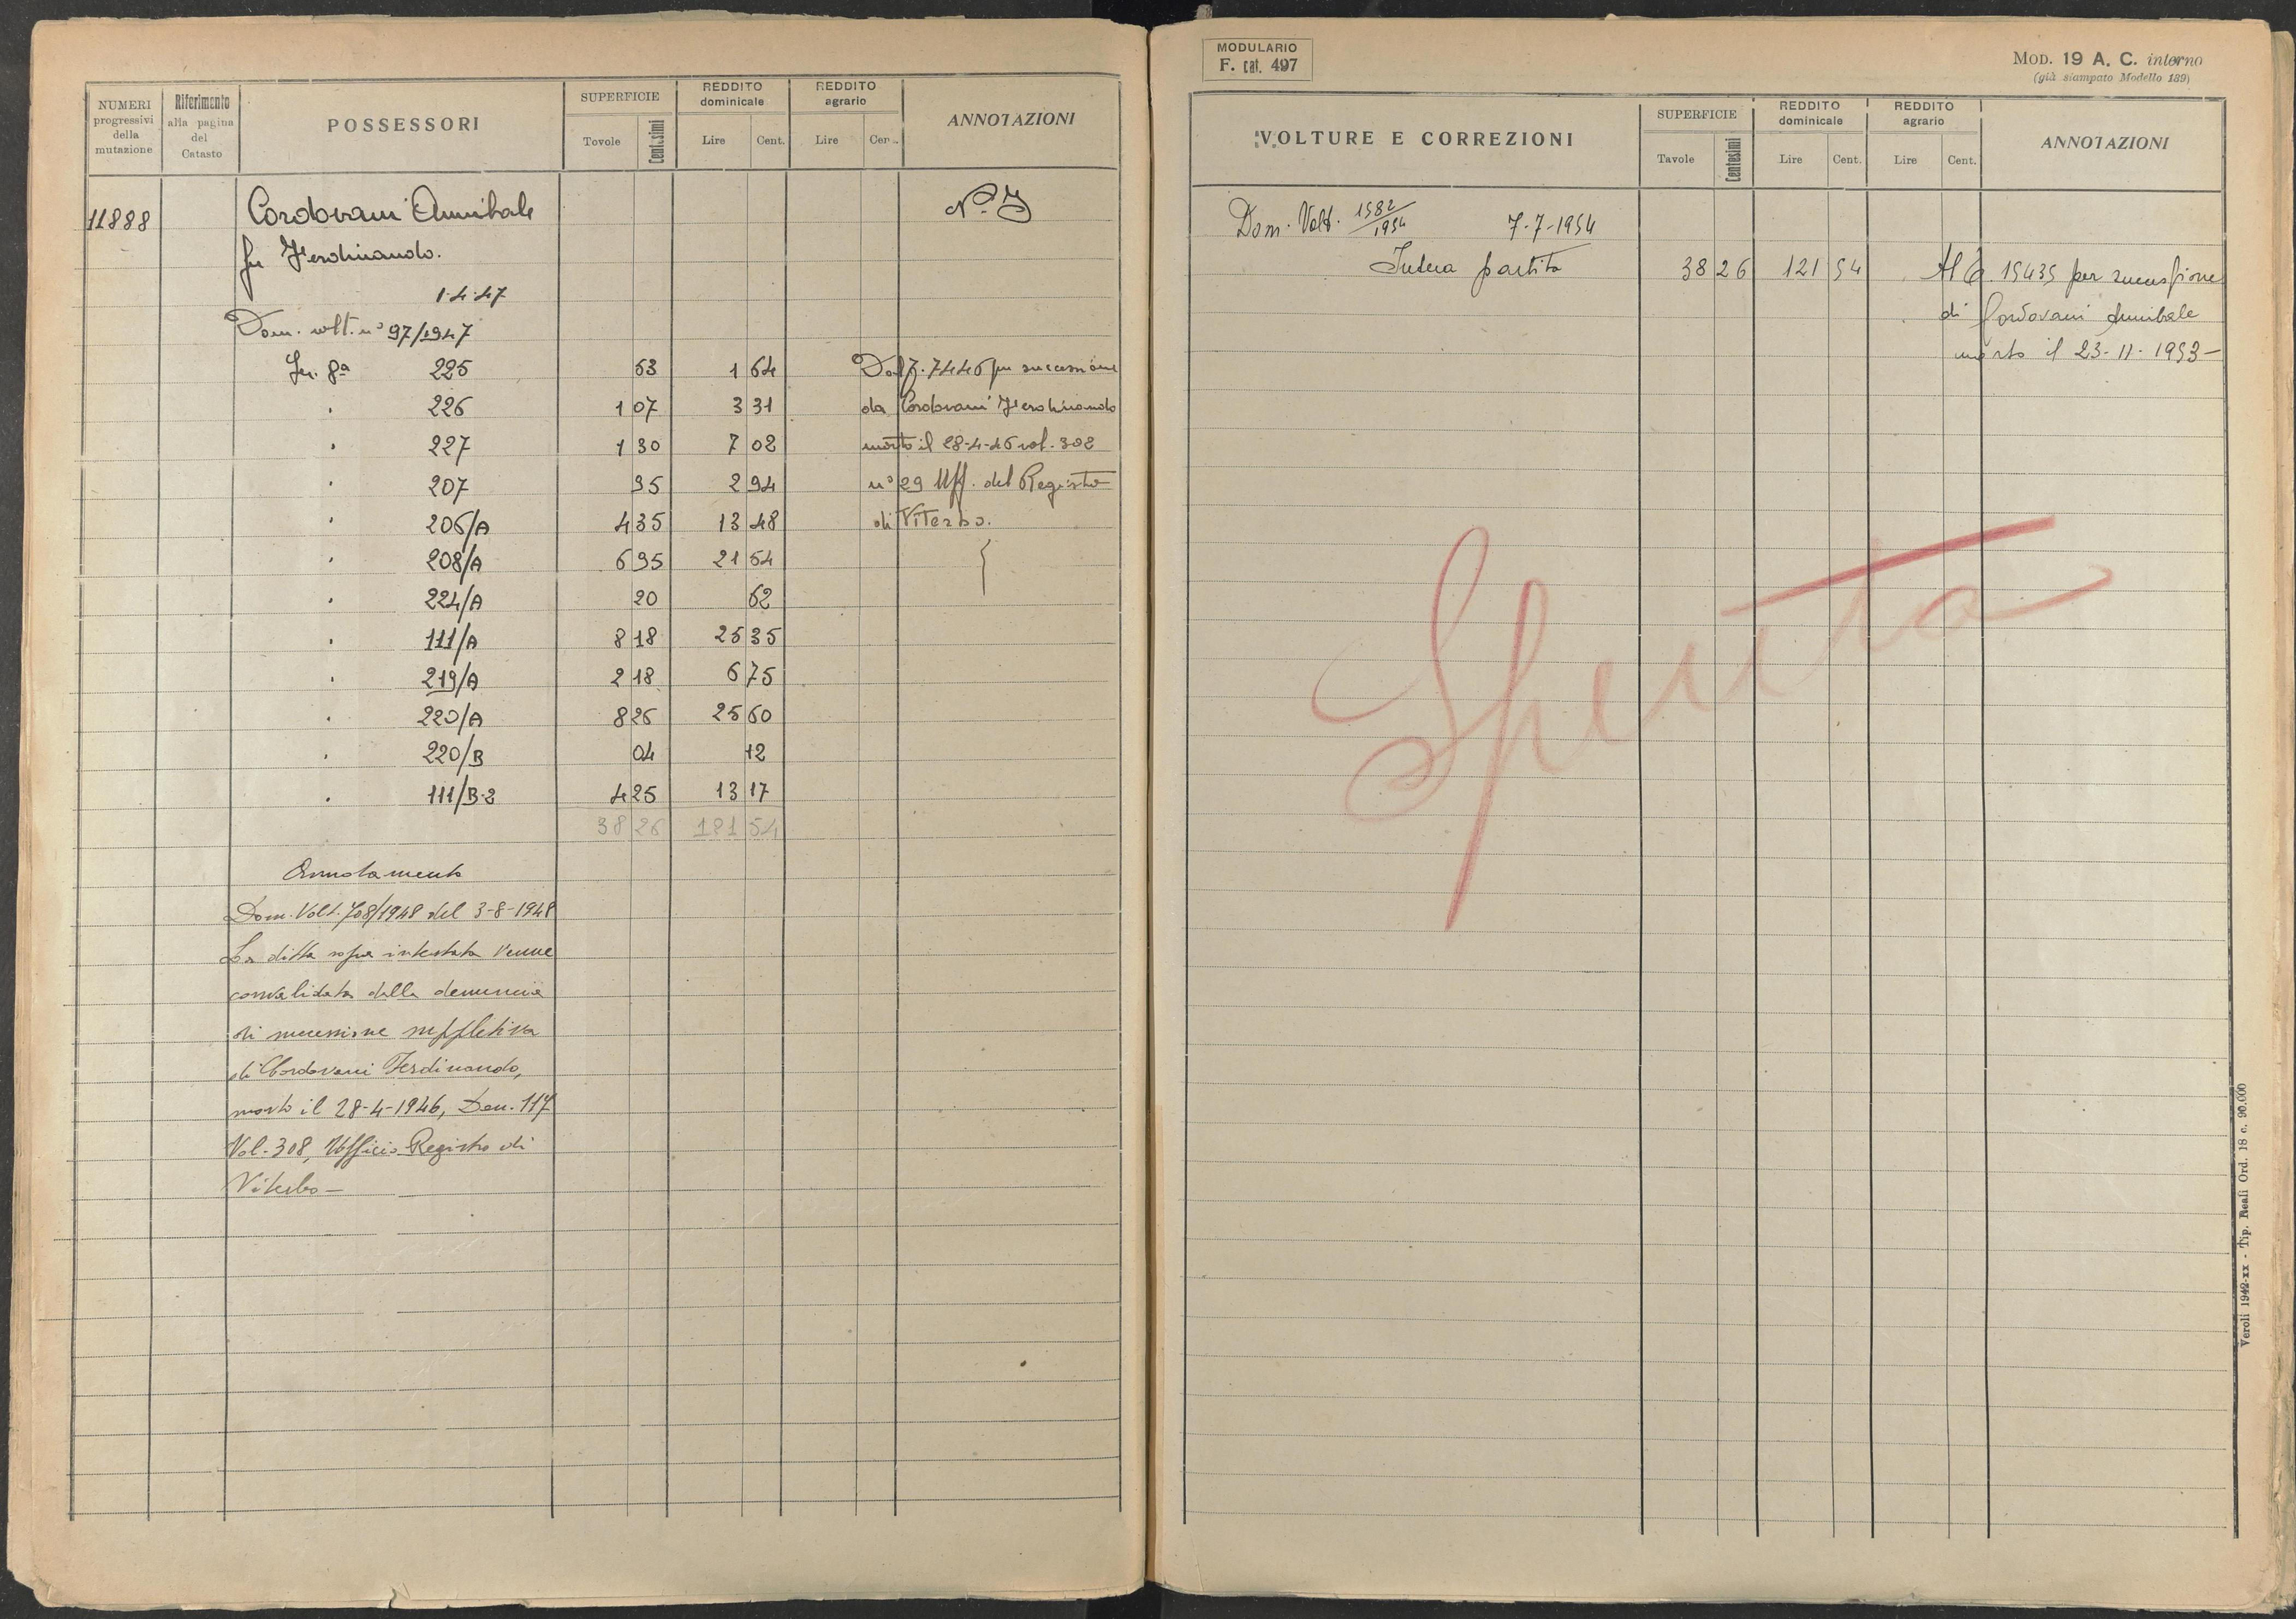 NUMERI progressivi della mutazione
Riferimento alla pagina del Catasto
POSSESSORI
SUPERFICIE
Tavole Centesimi
REDDITO dominicale
Lire Cent.
REDDITO agrario
Lire Cen
ANNOTAZIONI
11888 Cordovani Annibale
fu Ferdinando.
1.4.47
Dom. volt. n° 97/1947
Sez. 8a 225 53 1 64 Dal p. 7446 per successione
" 226 1 07 3 31 da Cordovani Ferdinando
" 227 1 30 7 02 morto il 28-4-46 vol. 302
" 207 95 2 94 n° 29 Uff. del Registro
" 206/A 4 35 13 48 di Viterbo.
" 208/A 6 95 21 54
" 224/A 20 62
" 111/A 8 18 25 35
" 219/A 2 18 6 75
" 220/A 8 26 25 60
" 220/B 04 12
" 111/B-2 4 25 13 17
38 26 121 54
Annotamento
Dom. Volt. 708/1948 del 3-8-1948
La ditta sopra intestata venne
convalidata dalla denuncia
di successione suppletiva
di Cordovani Ferdinando,
morto il 28-4-1946, Den. 117
Vol. 308, Ufficio Registro di
Viterbo —
MODULARIO
F. cat. 497
MOD. 19 A. C. interno
(già stampato Modello 189)
VOLTURE E CORREZIONI
SUPERFICIE
Tavole Centesimi
REDDITO dominicale
Lire Cent.
REDDITO agrario
Lire Cent.
ANNOTAZIONI
Dom. Volt. 1582/1954 7-7-1954
Intera partita 38 26 121 54 Al 15435 per successione
di Cordovani Annibale
morto il 23-11-1953 —
Spenta
Veroli 1942-XX - Tip. Reali Ord. 18 c. 90.000